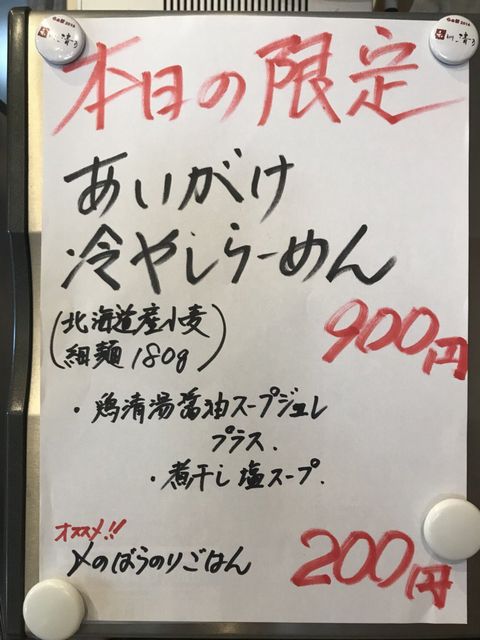 本日の限定
あいがけ
冷やしらーめん
(北海道産小麦
細麺180g)
900円
・鶏清湯醤油スープジュレ
プラス.
・煮干し塩スープ.
オススメ!!
〆のばらのりごはん
200円